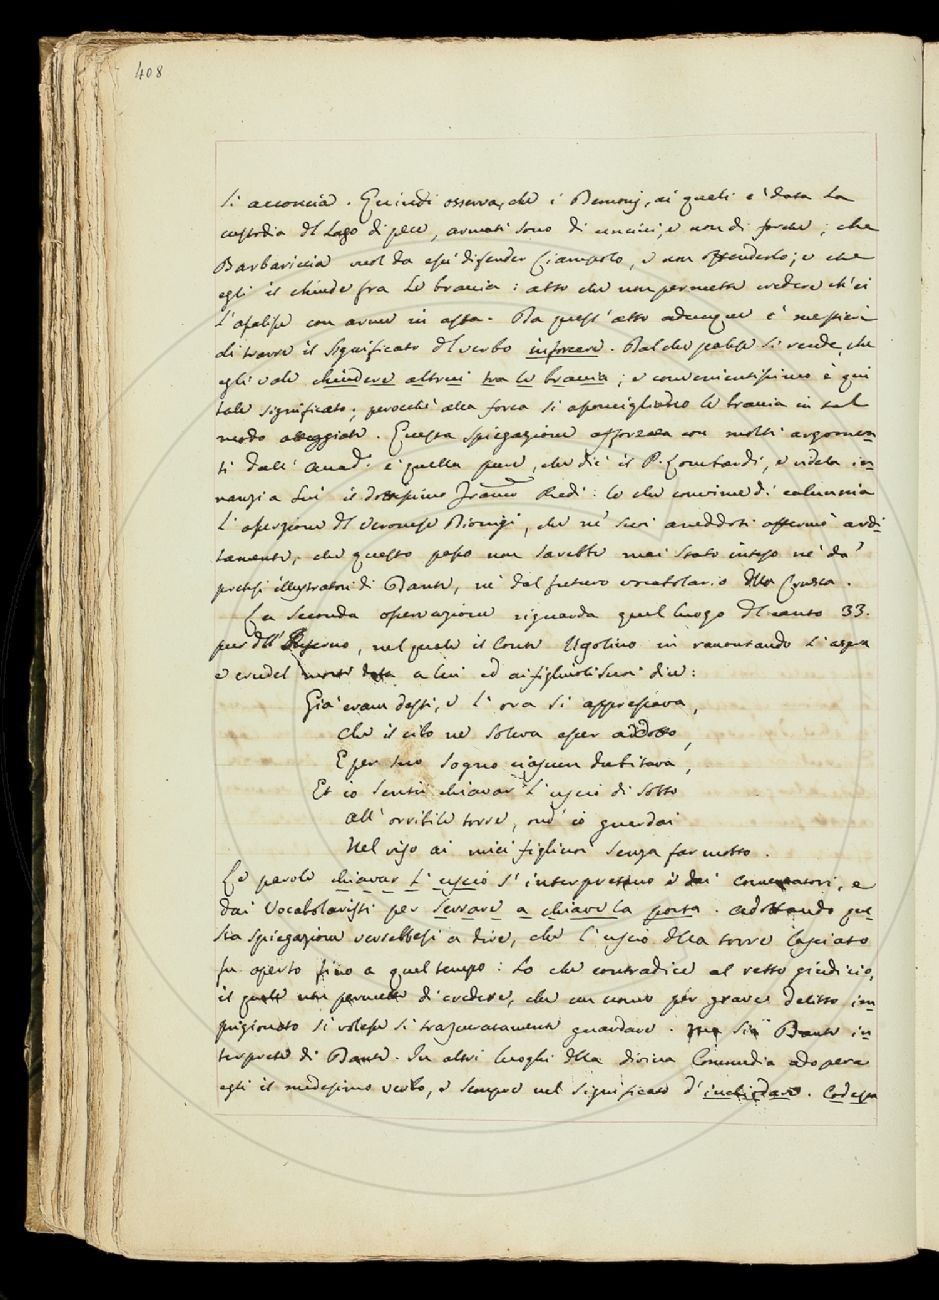 408
si acconcia. Quindi osserva, che i Demonj, ai quali è data la
custodia del Lago di pece, armati sono di uncini, e non di forche; che
Barbariccia vuol da essi difender Ciampolo, e non offenderlo; e che
egli il chiude fra le braccia: atto che non permette credere ch'ei
l'assalisse con arme in asta. Da quest'atto adunque è mestieri
di trarre il significato del verbo inforcare. Dal che palese si rende, che
egli vale chiudere altrui tra le braccia; e convenientissimo è qui
tale significato; perocchè alla forca si assomigliano le braccia in tal
modo atteggiate. Questa spiegazione afforzata con molti argomen
ti dall'Accad. è quella pure, che diè il P. Lombardi, e videla in
nanzi a lui il dottissimo Franco Redi: lo che convince di calunnia
l'asserzione del Veronese Dionigi, che ne' suoi aneddoti affermò ardi
tamente, che questo passo non sarebbe mai stato inteso nè da'
pretesi illustratori di Dante, nè dal futuro vocabolario della Crusca.
La seconda osservazione riguarda quel luogo del canto 33.
pur dell'Inferno, nel quale il Conte Ugolino in raccontando l'aspra
e crudel morte data a lui ed ai figliuoli suoi dice:
Già eram desti, e l'ora si appressava,
che il cibo ne soleva esser addotto,
E per suo sogno ciascun dubitava,
Et io sentii chiavar l'uscio di sotto
all'orribile torre, ond'io guardai
Nel viso ai miei figliuoi senza far motto.
Le parole chiavar l'uscio s'interpretano e dai comentatori, e
dai Vocabolaristi per serrare a chiave la porta. adottando que
sta spiegazione verrebbesi a dire, che l'uscio della torre lasciato
fu aperto fino a quel tempo: lo che contradice al retto giudicio,
il quale non permette di credere, che un uomo per grave delitto im
prigionato si volesse sì trascuratamente guardare. Ma sia Dante in
terprete di Dante. In altri luoghi della divina Commedia adopera
egli il medesimo verbo, e sempre nel significato d'inchiodare. Codesta